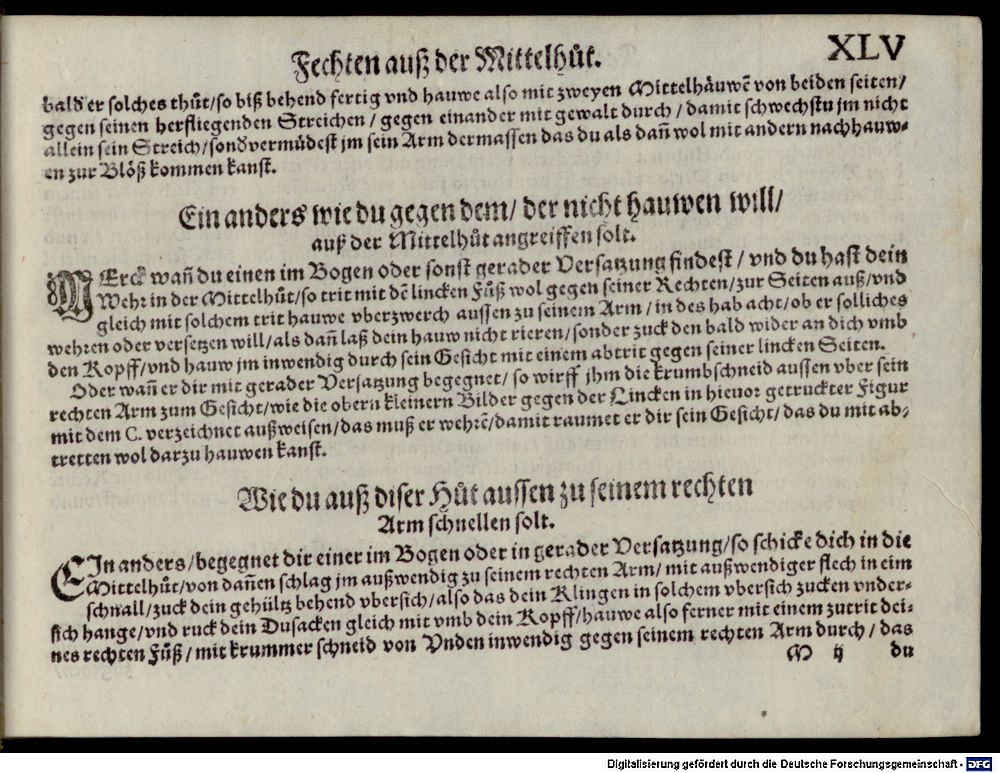 Fechten auß der Mittelhůt.
XLV
bald er solches thůt/so biß behend fertig vnd hauwe also mit zweyen Mittelhäuwẽ von beiden seiten/
gegen seinen herfliegenden Streichen / gegen einander mit gewalt durch / damit schwechstu jm nicht
allein sein Streich/sonð vermüdest jm sein Arm dermassen das du als dañ wol mit andern nachhauw-
en zur Blöß kommen kanst.
Ein anders wie du gegen dem/ der nicht hauwen will/
auß der Mittelhůt angreiffen solt.
MErck wañ du einen im Bogen oder sonst gerader Versatzung findest / vnd du hast dein
Wehr in der Mittelhůt/so trit mit dẽ lincken Fůß wol gegen seiner Rechten/zur Seiten auß/vnd
gleich mit solchem trit hauwe vberzwerch aussen zu seinem Arm / in des hab acht/ob er solliches
wehren oder versetzen will/als dañ laß dein hauw nicht rieren/sonder zuck den bald wider an dich vmb
den Kopff/vnd hauw jm inwendig durch sein Gesicht mit einem abtrit gegen seiner lincken Seiten.
Oder wañ er dir mit gerader Versatzung begegnet/ so wirff jhm die krumbschneid aussen vber sein
rechten Arm zum Gesicht/wie die obern kleinern Bilder gegen der Lincken in hieuor getruckter Figur
mit dem C. verzeichnet außweisen/das muß er wehrẽ/damit raumet er dir sein Gesicht/das du mit ab-
tretten wol darzu hauwen kanst.
Wie du auß diser Hůt aussen zu seinem rechten
Arm schnellen solt.
EIn anders/begegnet dir einer im Bogen oder in gerader Versatzung/so schicke dich in die
Mittelhůt/von dañen schlag jm außwendig zu seinem rechten Arm/ mit außwendiger flech in eim
schnall/zuck dein gehültz behend vbersich/also das dein Klingen in solchem vbersich zucken vnder-
sich hange/vnd ruck dein Dusacken gleich mit vmb dein Kopff/hauwe also ferner mit einem zutrit dei-
nes rechten Fůß/mit krummer schneid von Vnden inwendig gegen seinem rechten Arm durch/ das
M ij du
Digitalisierung gefördert durch die Deutsche Forschungsgemeinschaft - DFG